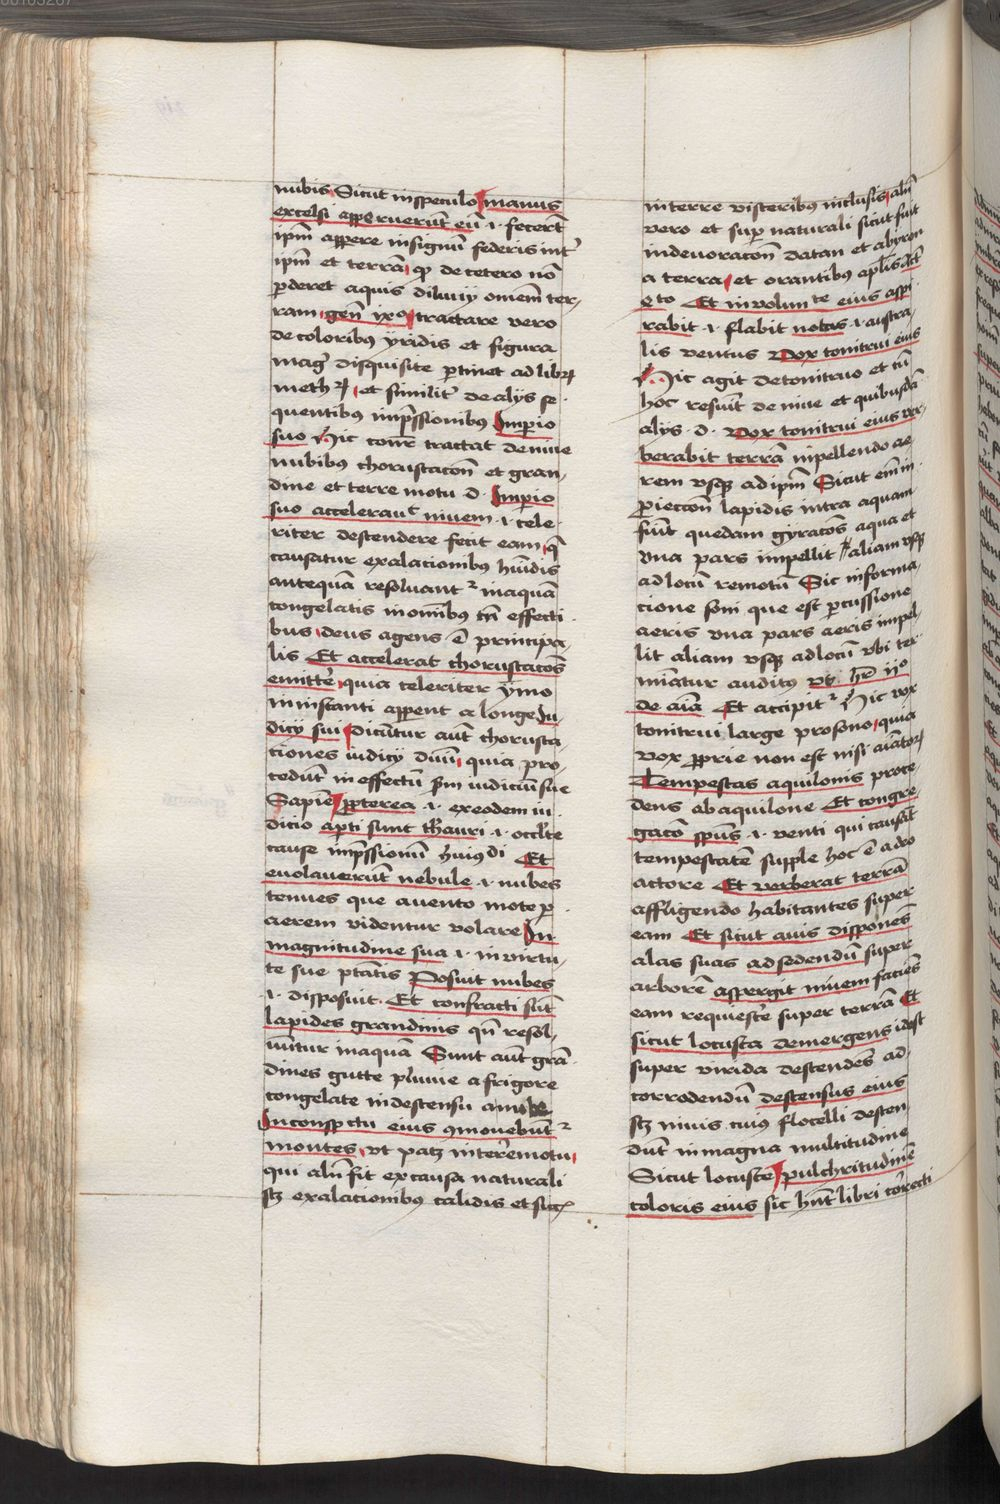 nubis Sicut in speculo manus
excelsi apperuerūt eū .i. fecerūt
ipm̄ appere in signum federis int᷑
ipm̄ et terrā qꝫ de cetero nō
ꝑderet aquis diluvij omnem ter-
ram gen̄ ixº tractare vero
de coloribꝰ yridis et figura
mag᷑ disquisite ꝑtinet ad libꝝ
metheꝝ et similit᷑ de alijs se
quentibus imp̄ssionibus Imperio
suo Hic cōn̄r tractat de niue
nubibꝰ choruscacōn̄ et gran-
dine et terre motu d. Imperio
suo accelerauᵗ niuem .i. cele-
riter descendere fecit eam q̄
causatur exalacionibꝰ hūidis
antequā resoluant᷑ in aquā
congelatis in omībus tn̄ effecti
bus deus agens ē principa
lis Et accelerat choruscacōs
emitte᷑ quia celeriter ymo
in instanti apperent a longe Iu-
dicij sui Dicūtur aūt chorusca-
ciones iudicij diuīi quia pro-
cedūt in effectū scd̄m iudiciū sue
Sapiē ꝓpterea .i. ex eodem iu-
dicio aꝑti sunt thauri .i. occlte
cause imp̄ssionū huiꝰdi Et
euolauerūt nebule .i. nubes
tenues que a uento mote ꝑ
aerem videntur volare In
magnitudine sua .i. in virtu-
te sue ptātis Posuit nubes
.i. disposuit. Et confracti sūt
lapides grandinis qn̄ resol-
uūtur in aquā Sunt aūt grā-
dines gutte pluuie a frigore
congelate in descensu a nube
In conspectu eius ꝯmouebūt᷑
montes vt patꝫ in terremotu
qui aln̄ fit ex causa naturali
scꝫ exalacionibus calidis et sic᷑
in terre visceribus inclusis aln̄
vero et supernaturali sicut fuit
in deuoracōn̄ datan et abyron
a terra et orantibus apl̄is Act
4to Et in volunte eius aspi
rabit .i. flabit notus .i. austra-
lis ventus Vox tonitrui eius
Hic agit de tonitruo et cū
hoc resuīt de niue et quibusdā
alijs .d. Vox tonitrui eius ver-
berabit terrā inpellendo ae-
rem vsqꝫ ad ipm̄ Sicut eīm in
ꝓieccōn̄ lapidis intra aquam
fiūt quedam gyracōs aqua et
vna pars impellit aliam vsqꝫ
ad locū remotū Sic in forma-
cione soni que est ꝑcussione
aeris vna pars aeris impel-
lit aliam vsqꝫ ad locū vbi ter-
mīatur auditꝰ vt hr̄ ijº
de aīa Et accipit᷑ hic vox
tonitrui large pro sono quia
vox ꝓprie non est nisi aīatoꝝ
Tempestas aquilonis proce-
dens ab aquilone Et congre-
gacō spūs .i. venti qui causat
tempestatē supple hoc ē a deo
actore Et verberat terrā
affligendo habitantes super
eam Et sicut auis disponēs
alas suas ad sedendū super
arborē aspergit niuem faciēs
eam requiesce᷑ super terrā Et
sicut locusta demergens idest
super virida descendēs ad
corrodendū descensus eius
scꝫ niuis cuiꝰ flocelli descen-
dūt in magna multitudine
Sicut locuste pulchritudinē
coloris eius sic hn̄t libri correcti